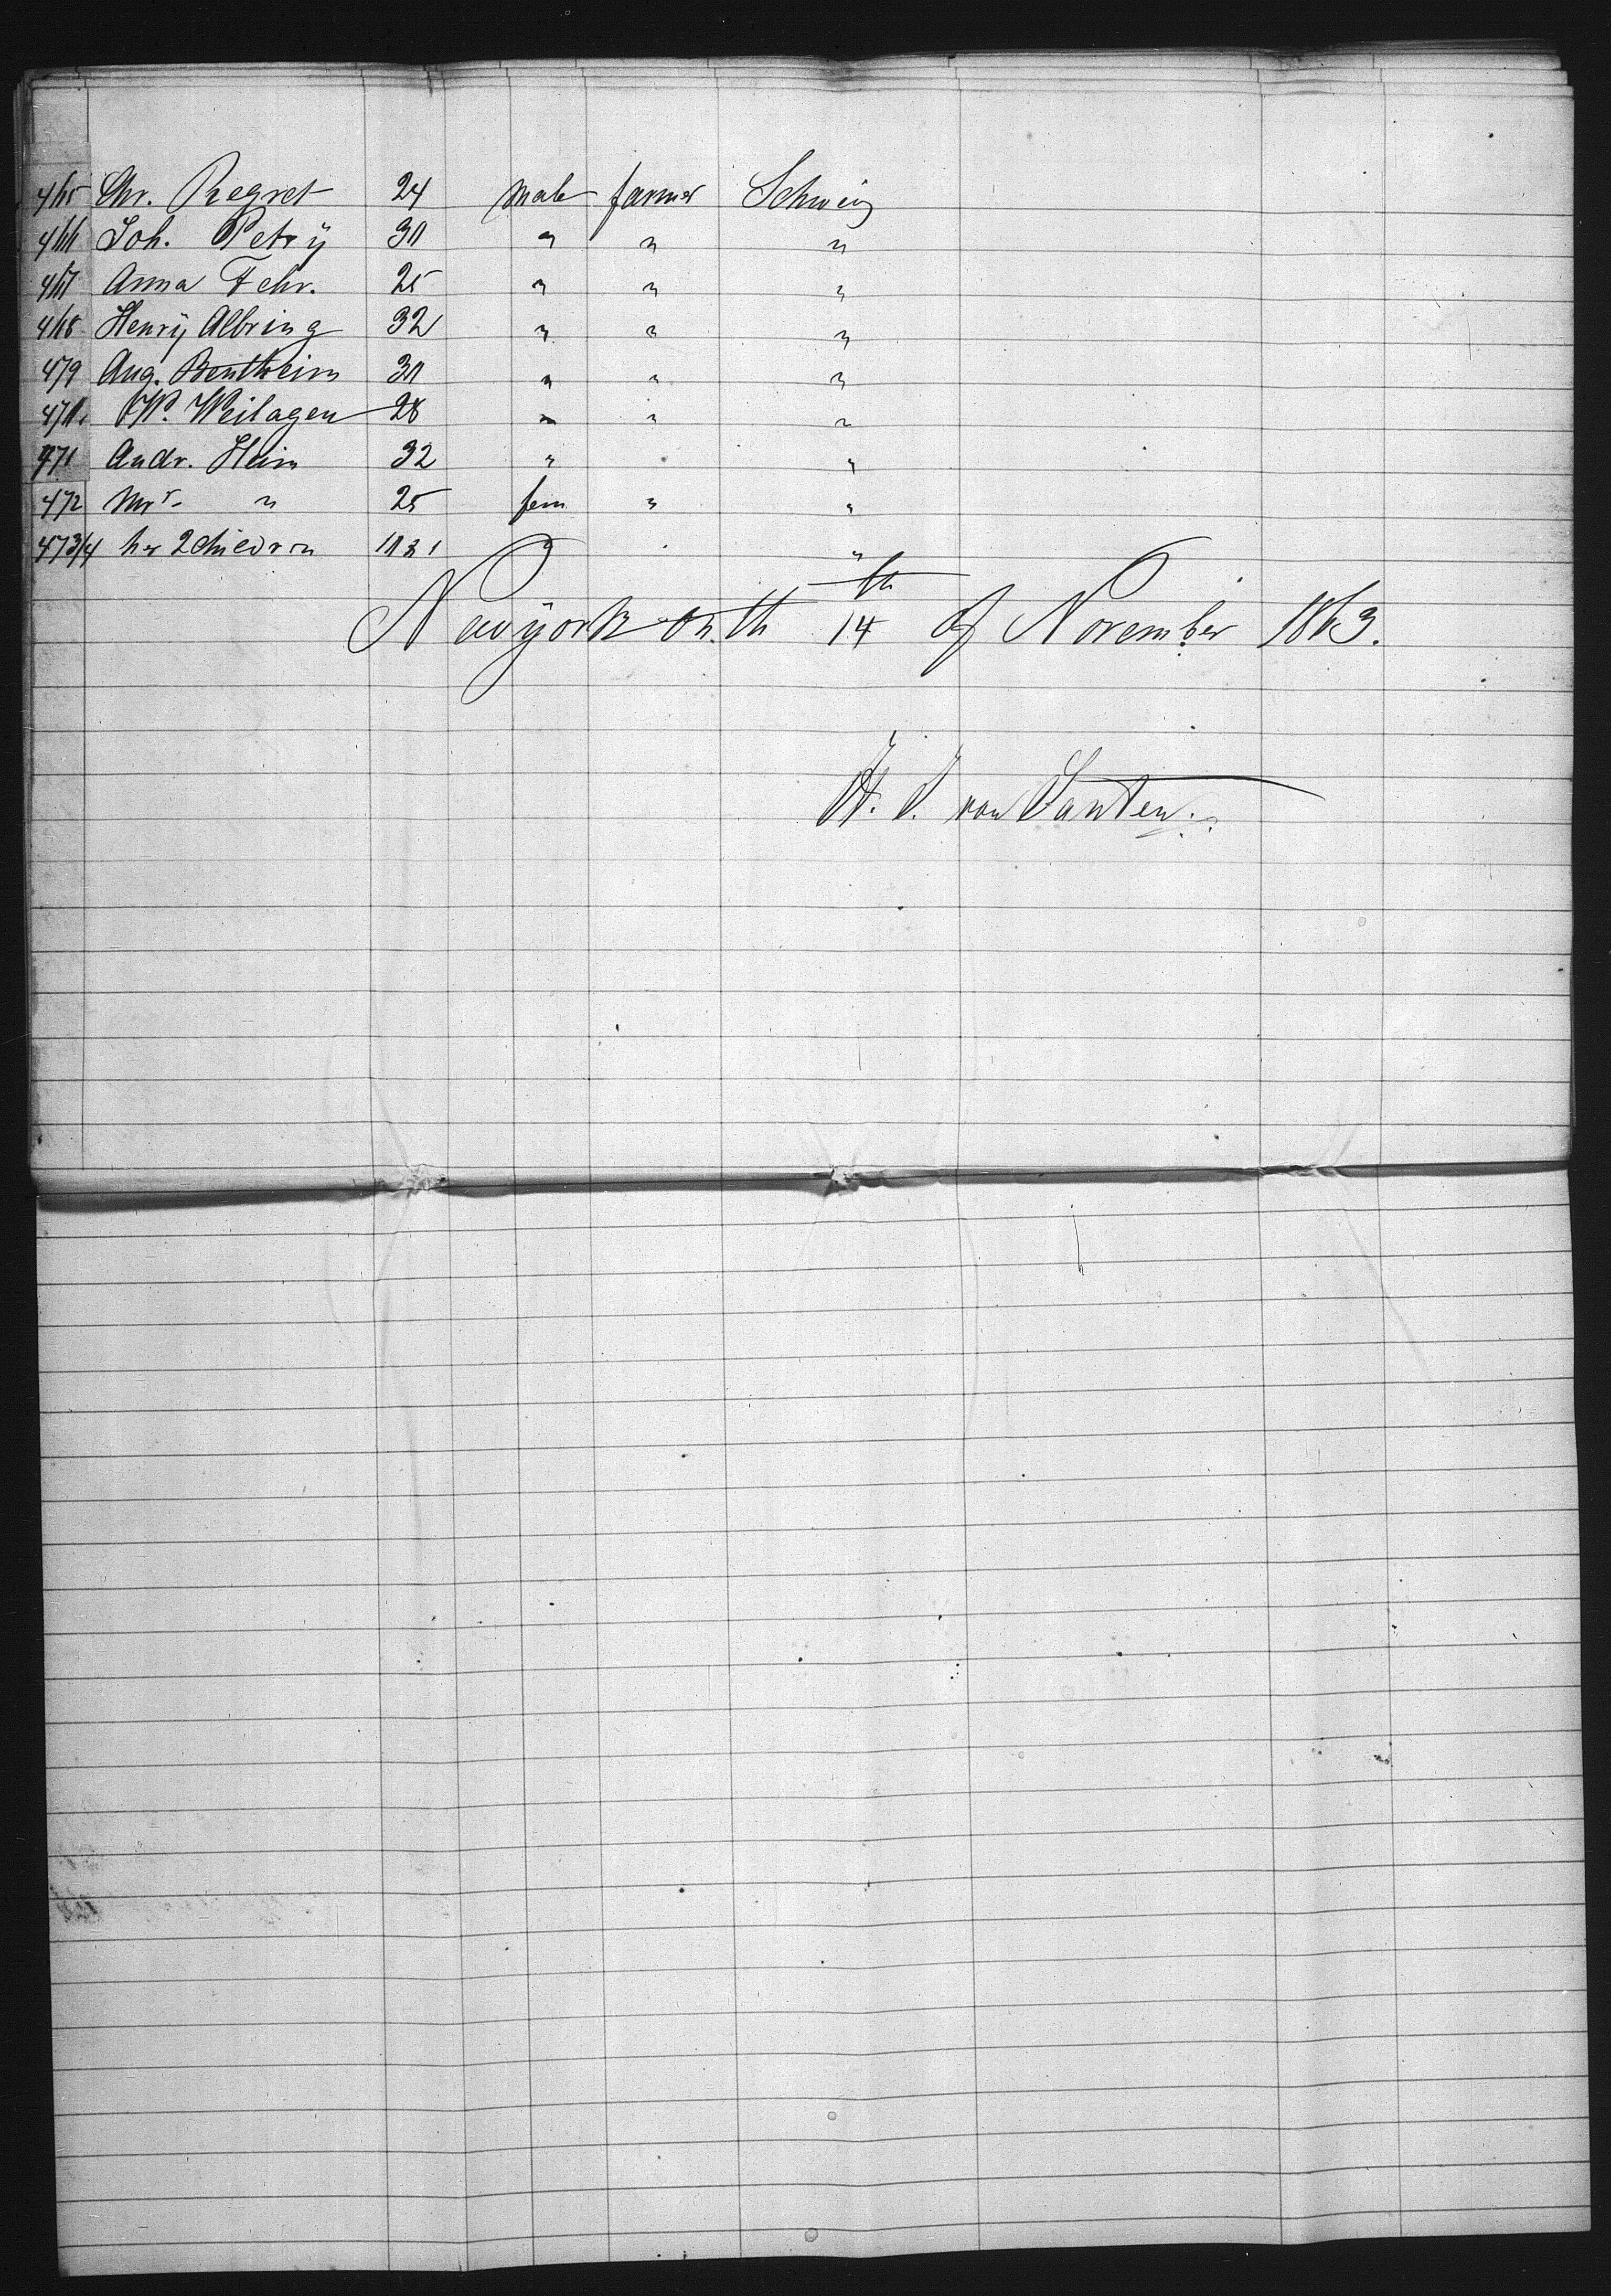 465 Chr. Regret 24 male farmer Schweiz
466 Joh. Petrÿ 30 " " "
467 Anna Fehr. 25 " " "
468 Henrÿ Albring 32 " " "
479 Aug. Bentheim 30 " " "
470. W. Weilagen 28 " " "
471 Andr. Heim 32 " "
472 Mrs " 25 fem " "
473/4 her 2 Children "
Newÿork on th 14th of November 1863.
H. J. von Santen.